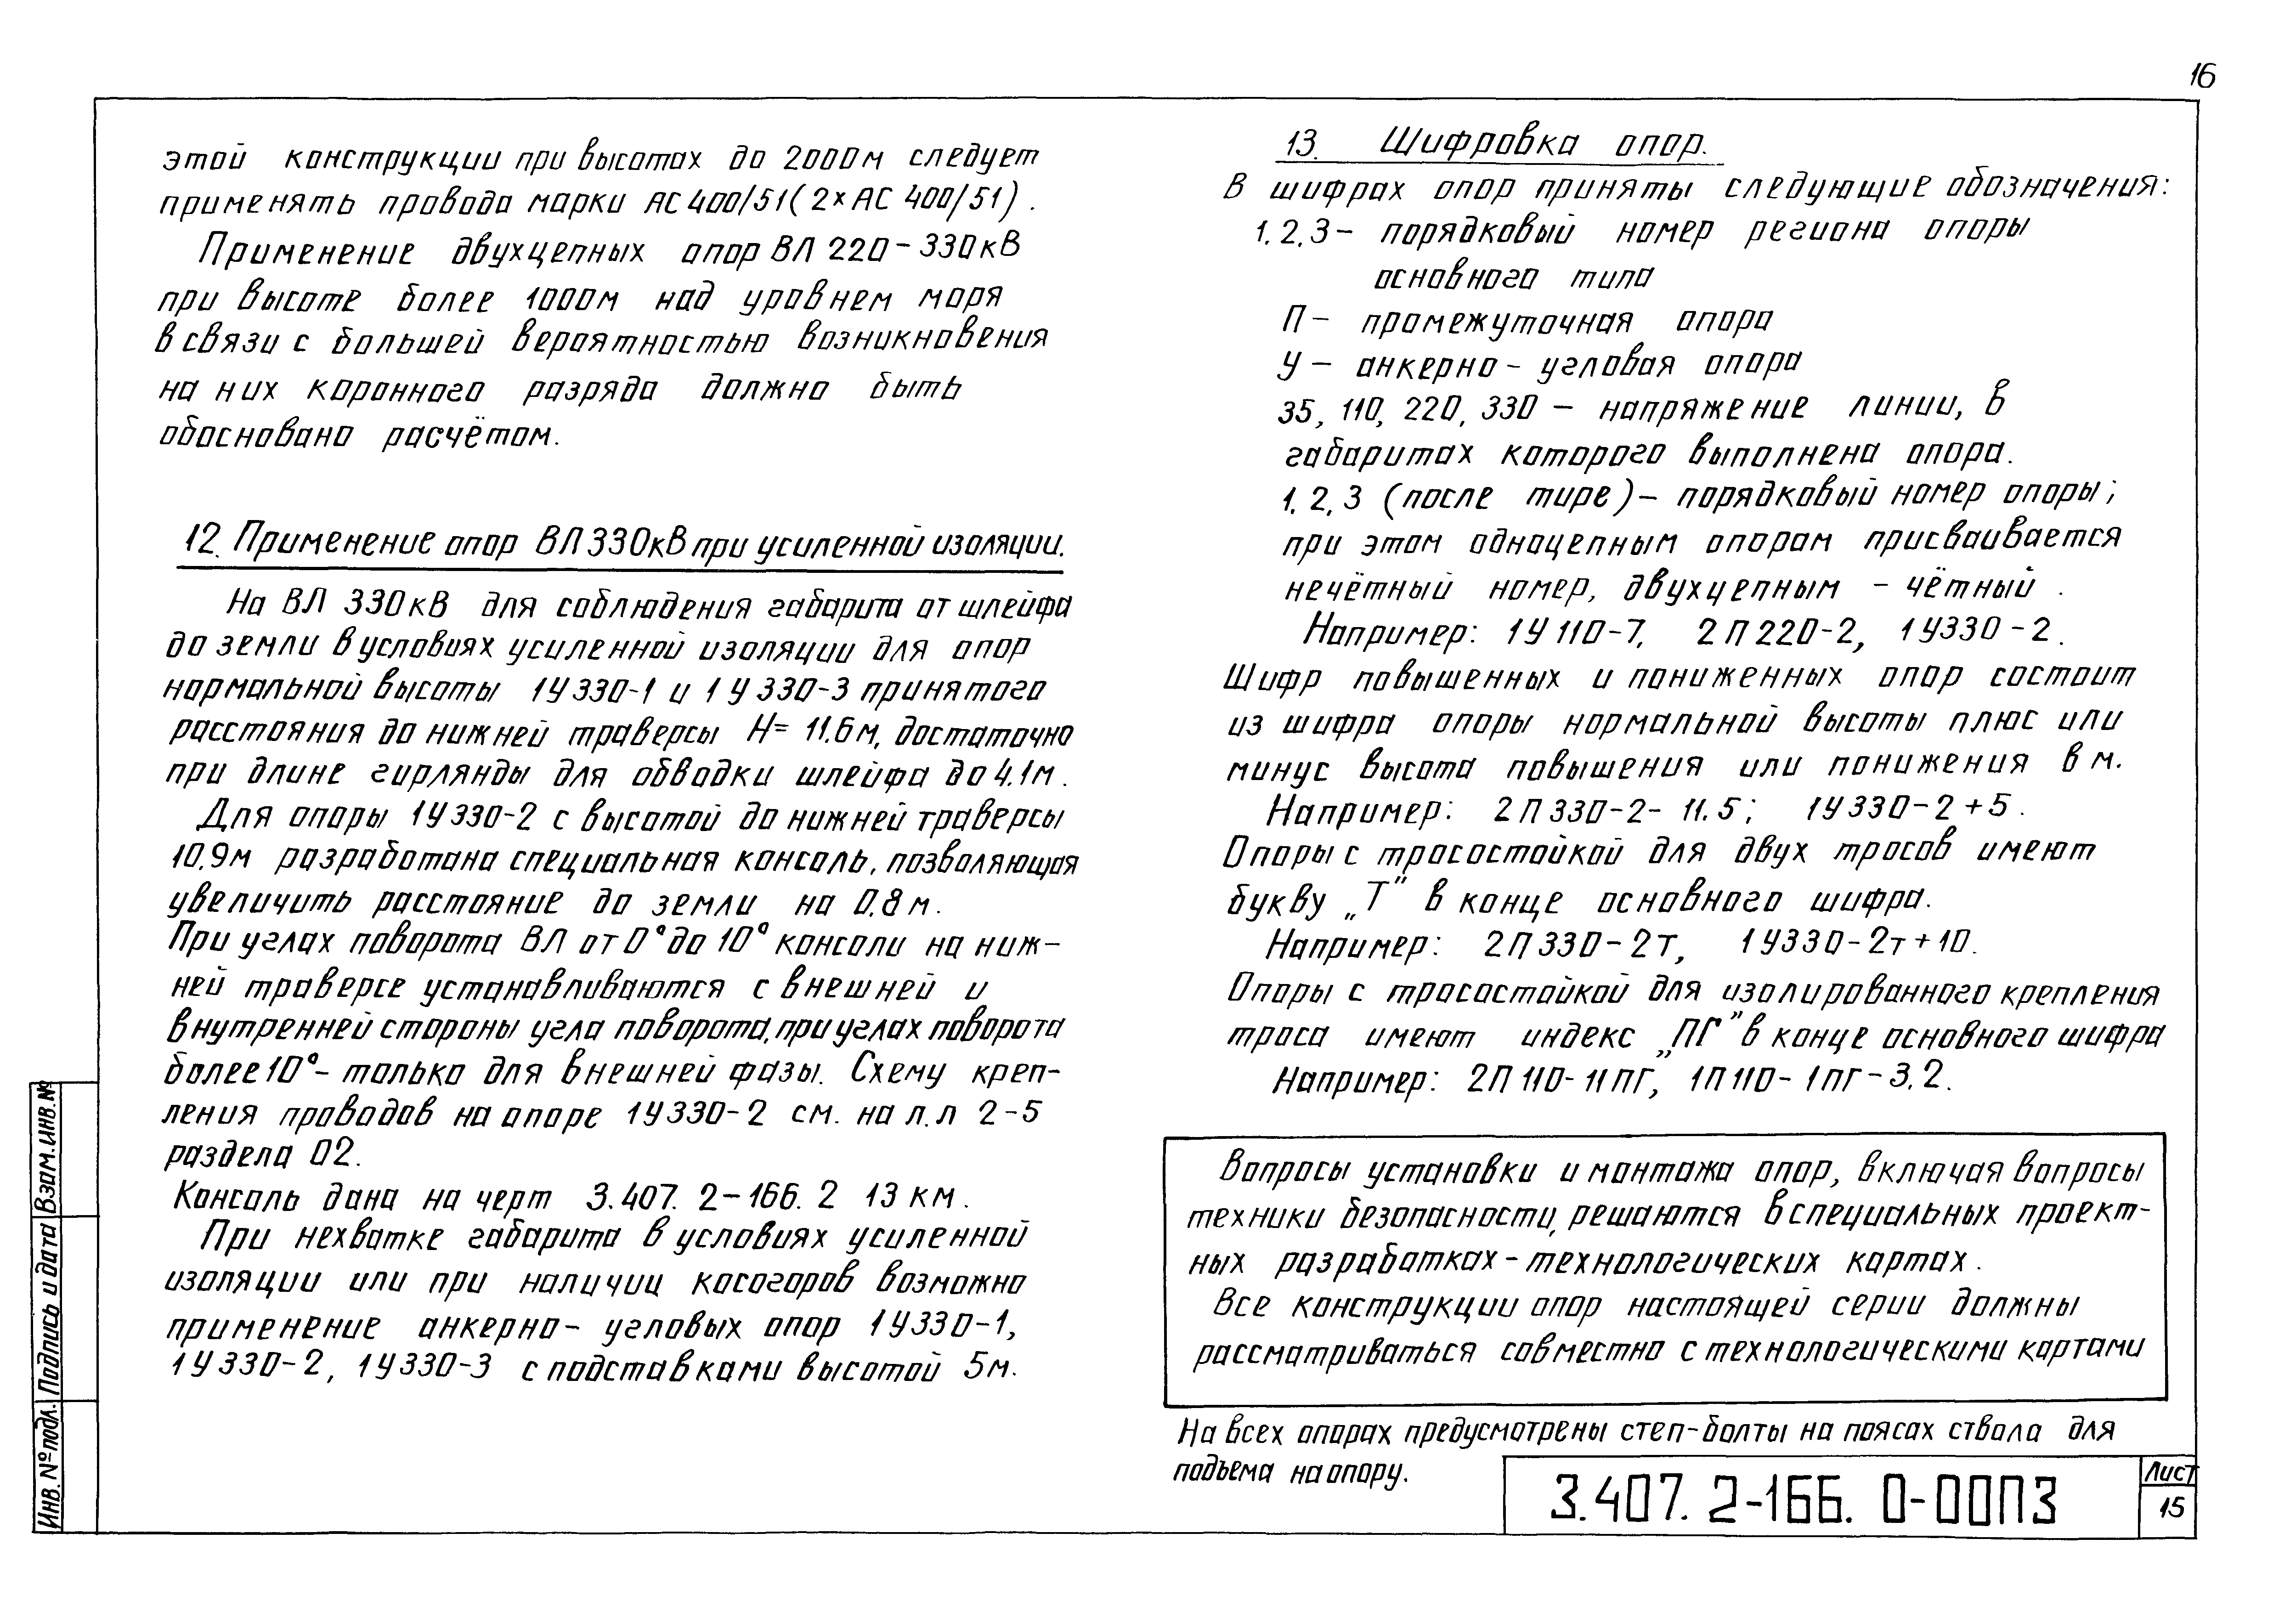 16
этой конструкции при высотах до 2000м следует
применять провода марки АС 400/51 (2×АС 400/51).
Применение двухцепных опор ВЛ 220-330кВ
при высоте более 1000м над уровнем моря
в связи с большей вероятностью возникновения
на них коронного разряда должно быть
обосновано расчётом.
12. Применение опор ВЛ 330кВ при усиленной изоляции.
На ВЛ 330кВ для соблюдения габарита от шлейфа
до земли в условиях усиленной изоляции для опор
нормальной высоты 1У330-1 и 1У330-3 принятого
расстояния до нижней траверсы Н= 11.6м, достаточно
при длине гирлянды для обводки шлейфа до 4.1м.
Для опоры 1У330-2 с высотой до нижней траверсы
10.9м разработана специальная консоль, позволяющая
увеличить расстояние до земли на 0.8м.
При углах поворота ВЛ от 0° до 10° консоли на ниж-
ней траверсе устанавливаются с внешней и
внутренней стороны угла поворота, при углах поворота
более 10° - только для внешней фазы. Схему креп-
ления проводов на опоре 1У330-2 см. на л.л 2-5
раздела 02.
Консоль дана на черт 3.407. 2-166. 2 13 км.
При нехватке габарита в условиях усиленной
изоляции или при наличии косогоров возможно
применение анкерно- угловых опор 1У330-1,
1У330-2, 1У330-3 с подставками высотой 5м.
13. Шифровка опор.
В шифрах опор приняты следующие обозначения:
1.2.3- порядковый номер региона опоры
основного типа
П- промежуточная опора
У- анкерно- угловая опора
35, 110, 220, 330 - напряжение линии, в
габаритах которого выполнена опора.
1.2.3 (после тире) - порядковый номер опоры;
при этом одноцепным опорам присваивается
нечётный номер, двухцепным - чётный.
Например: 1У110-7, 2П220-2, 1У330-2.
Шифр повышенных и пониженных опор состоит
из шифра опоры нормальной высоты плюс или
минус высота повышения или понижения в м.
Например: 2П330-2- 11.5; 1У330-2+5.
Опоры с тросостойкой для двух тросов имеют
букву „Т” в конце основного шифра.
Например: 2П330-2т, 1У330-2т+10.
Опоры с тросостойкой для изолированного крепления
троса имеют индекс „ПГ” в конце основного шифра
Например: 2П110-11пг, 1П110-1пг-3.2.
Вопросы установки и монтажа опор, включая вопросы
техники безопасности, решаются в специальных проект-
ных разработках - технологических картах.
Все конструкции опор настоящей серии должны
рассматриваться совместно с технологическими картами
На всех опорах предусмотрены степ-болты на поясах ствола для
подъема на опору.
3.407. 2-166. 0-00ПЗ
Лист
15
Инв. № подл.
Подпись и дата
Взам. инв. №